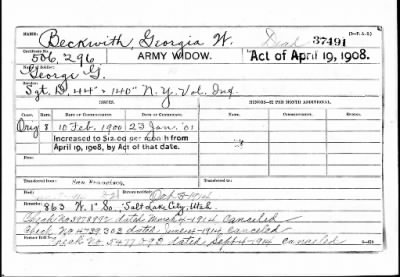 NAME: Beckwith, Georgia W. Dead 37491
Certificate No. 506,296 ARMY WIDOW. Act of April 19, 1908.
Name of Soldier:
George G.
Sgt. D, 44" & 140" N.Y. Vol. Inf.
ISSUES. MINORS—$2 PER MONTH ADDITIONAL.
CLASS. RATE. DATE OF COMMENCEMENT. DATE OF CERTIFICATE.
Orig 8 10 Feb. 1900 23 Jan. '01
Increased to $12.00 per month from
April 19, 1908, by Act of that date.
Transferred from San Francisco Transferred to:
Died
Remarks: 863 W. 1st So., Salt Lake City, Utah.
Check No 3978992 dated March 4-1914 Canceled
Check No 4739302 dated June 4-1914 canceled
Check No. 5477292 dated Sept 4-1914 canceled